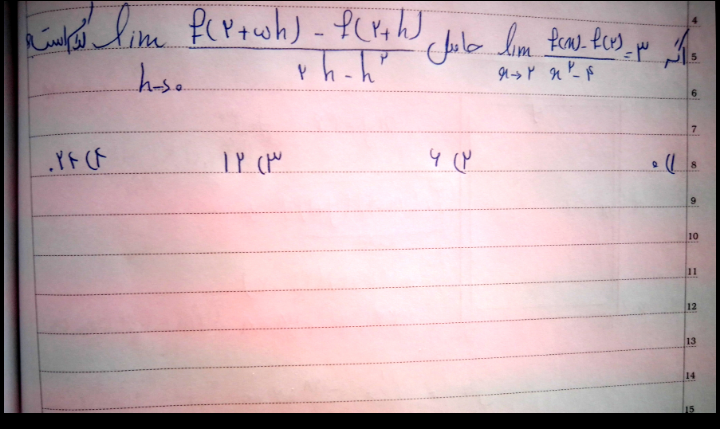 اگر lim x→۲ f(x)-f(۲) / x^۲-۴ = ۳ حاصل lim h→۰ f(۲+۵h) - f(۲+h) / ۲h-h^۲ کدام است
۱) ۰ ۲) ۶ ۳) ۱۲ ۴) ۲۴.
4
5
6
7
8
9
10
11
12
13
14
15